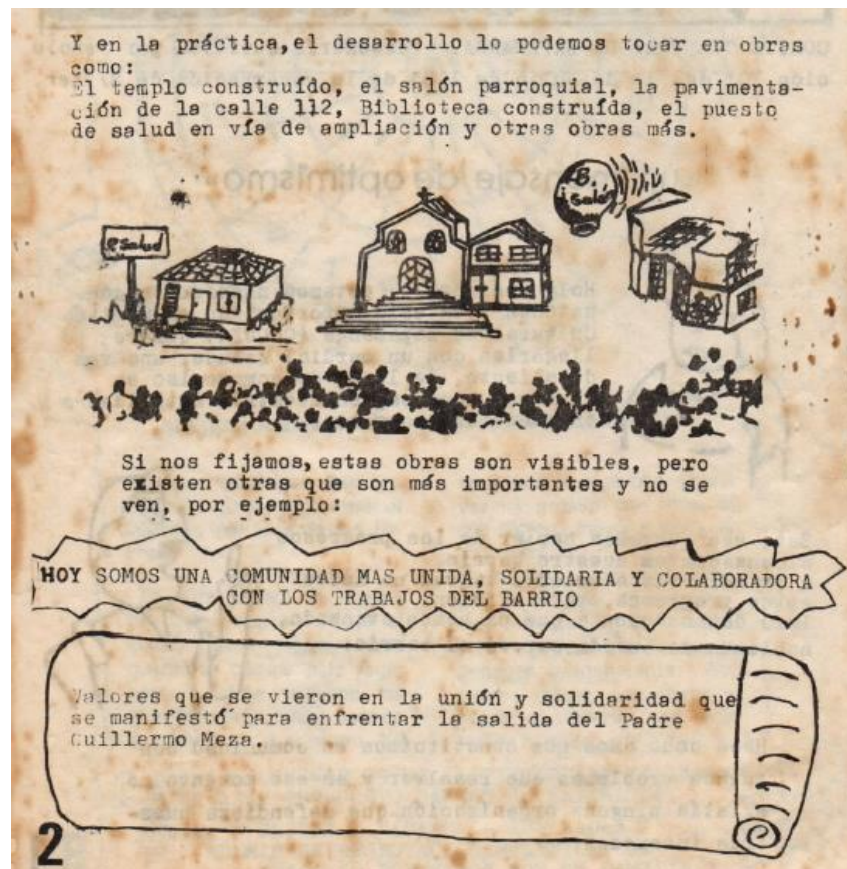 Y en la práctica,el desarrollo lo podemos tocar en obras
como:
El templo construído, el salón parroquial, la pavimenta-
ción de la calle 112, Biblioteca construída, el puesto
de salud en vía de ampliación y otras obras más.
mensaje de optimismo
B.
Salón
Salud
Si nos fijamos,estas obras son visibles, pero
existen otras que son más importantes y no se
ven, por ejemplo:
HOY SOMOS UNA COMUNIDAD MAS UNIDA, SOLIDARIA Y COLABORADORA
CON LOS TRABAJOS DEL BARRIO
Valores que se vieron en la unión y solidaridad que
se manifestó para enfrentar la salida del Padre
Guillermo Meza.
2